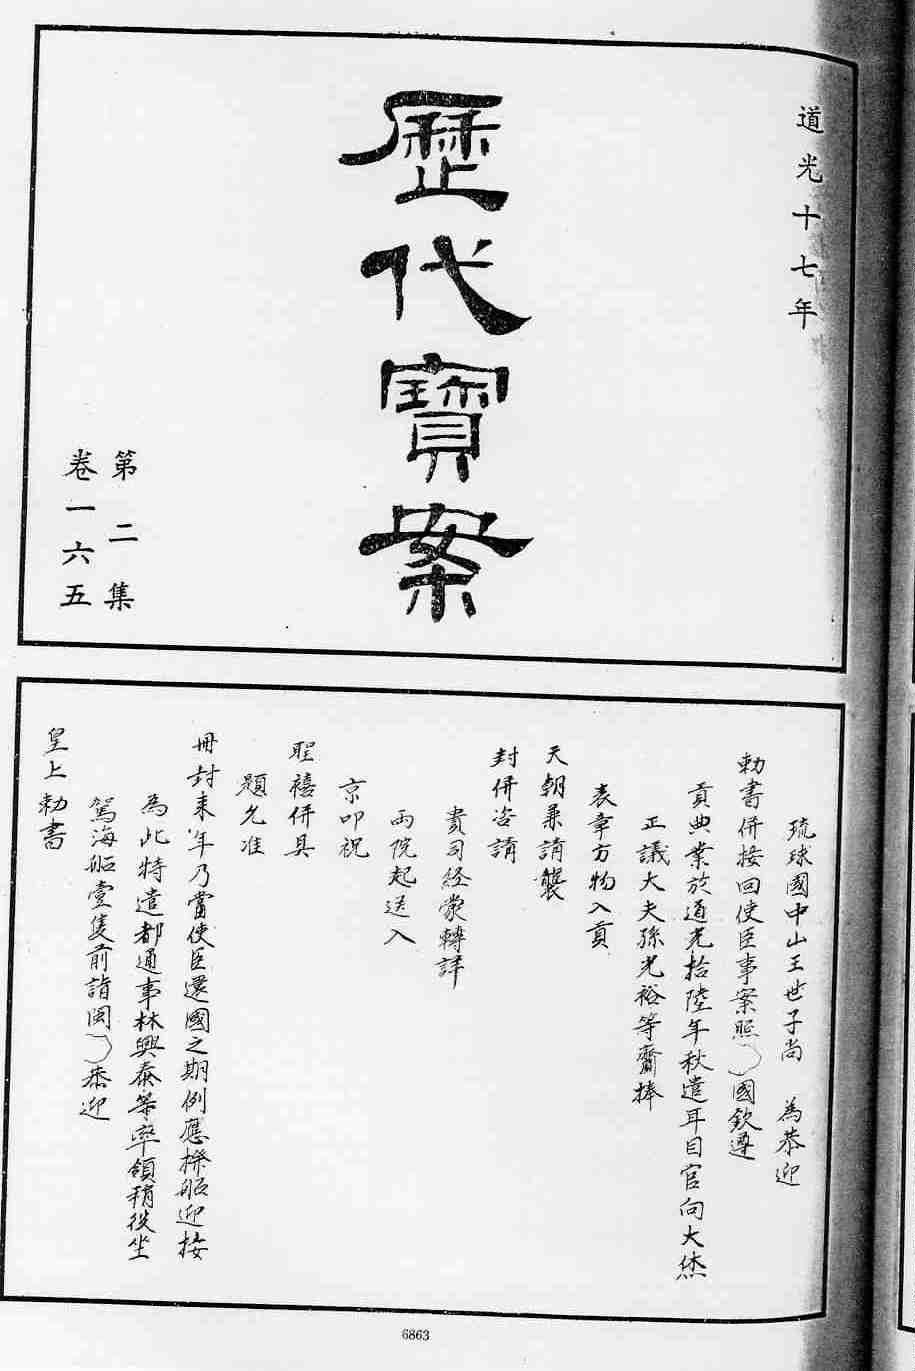 道光十七年
歷代寶案
第二集
卷一六五
琉球國中山王世子尚　為恭迎
勅書併接回使臣事案照　國欽遵
貢典業於道光拾陸年秋遣耳目官向大烋
正議大夫孫光裕等齎捧
表章方物入貢
天朝兼請襲
封併咨請
貴司經蒙轉詳
兩院起送入
京叩祝
聖禧併具
題允准
冊封來年乃當使臣還國之期例應撥船迎接
為此特遣都通事林興泰等率領稍役坐
駕海船壹隻前詣閩　恭迎
皇上勅書
6863